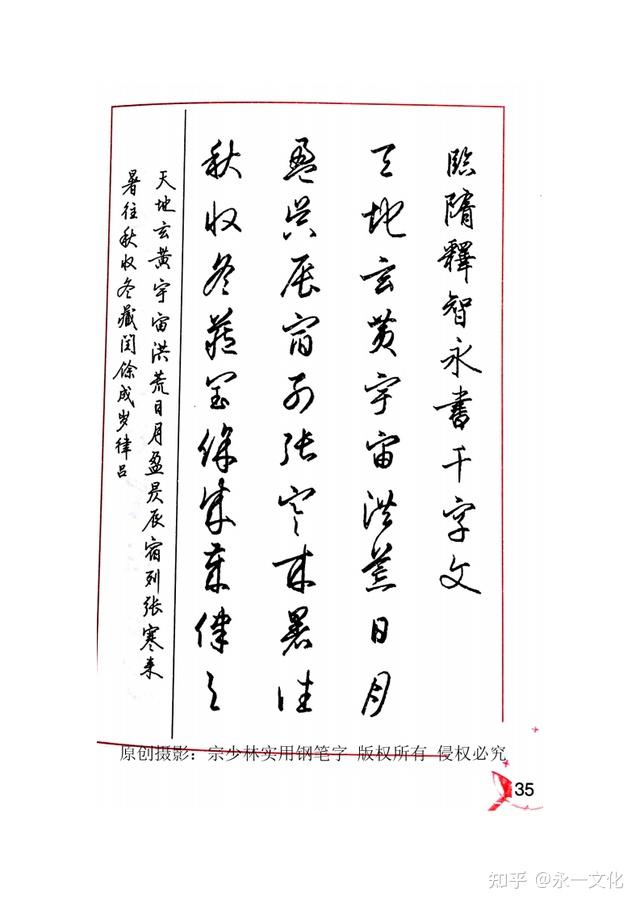 臨隋釋智永書千字文
天地玄黄宇宙洪荒日月
盈昃辰宿列张寒来暑往
秋收冬藏闰馀成岁律吕
天地玄黄宇宙洪荒日月盈昃辰宿列张寒来
暑往秋收冬藏闰馀成岁律吕
原创摄影：宗少林实用钢笔字 版权所有 侵权必究
35
知乎 @永一文化